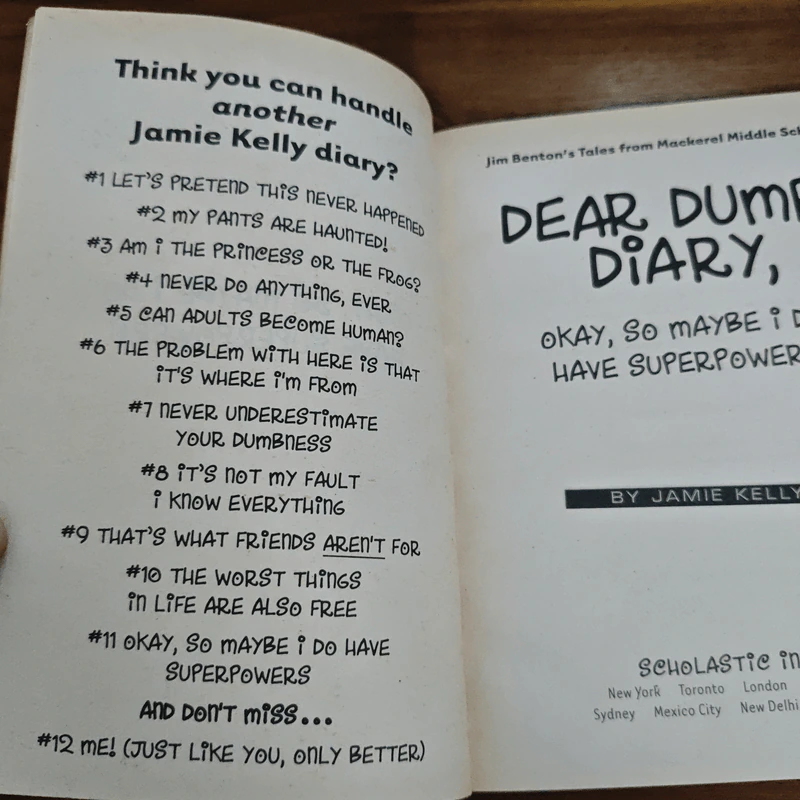 Think you can handle
another
Jamie Kelly diary?
#1 LET'S PRETEND THIS NEVER HAPPENED
#2 MY PANTS ARE HAUNTED!
#3 AM I THE PRINCESS OR THE FROG?
#4 NEVER DO ANYTHING, EVER
#5 CAN ADULTS BECOME HUMAN?
#6 THE PROBLEM WITH HERE IS THAT
IT'S WHERE I'M FROM
#7 NEVER UNDERESTIMATE
YOUR DUMBNESS
#8 IT'S NOT MY FAULT
I KNOW EVERYTHING
#9 THAT'S WHAT FRIENDS AREN'T FOR
#10 THE WORST THINGS
IN LIFE ARE ALSO FREE
#11 OKAY, SO MAYBE I DO HAVE
SUPERPOWERS
AND DON'T MISS...
#12 ME! (JUST LIKE YOU, ONLY BETTER)
Jim Benton's Tales from Mackerel Middle
DEAR
DIARY,
OKAY, SO MAYBE I
HAVE
BY JAMIE KELLY
SCHOLASTIC
New York Toronto London
Sydney Mexico City New Delhi